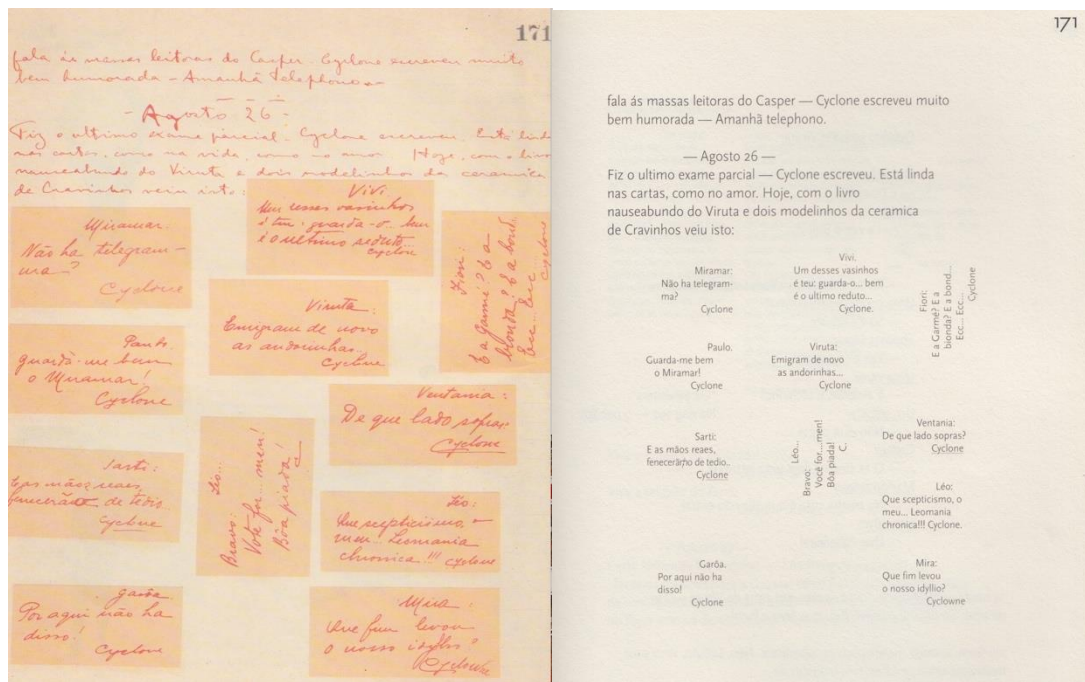 171
fala ás massas leitoras do Casper - Cyclone escreveu muito
bem humorada - Amanhã telephono -
- Agosto 26 -
Fiz o ultimo exame parcial - Cyclone escreveu. Está linda
nas cartas, como na vida, como no amor. Hoje, com o livro
nauseabundo do Viruta e dois modelinhos da ceramica
de Cravinhos veiu isto:
Miramar:
Não ha telegram-
ma?
Cyclone
Vivi
Um desses vasinhos
é teu: guarda-o... bem
é o ultimo reduto...
Cyclone
Fiori:
E a Garmé? E a
bionda? E a bond...
Ecc... Ecc...
Cyclone
Viruta:
Emigram de novo
as andorinhas...
Cyclone
Paulo.
guarda-me bem
o Miramar!
Cyclone
Ventania:
De que lado sopras?
Cyclone
Sarti:
E as mãos reaes,
fenecerão de tedio..
Cyclone
Léo...
Bravo:
Você for...men!
Bôa piada!
C.
Léo:
Que scepticismo, o
meu... Leomania
chronica!!! Cyclone
garôa.
Por aqui não ha
disso!
Cyclone
Mira:
Que fim levou
o nosso idyllio?
Cyclowne
171
fala ás massas leitoras do Casper — Cyclone escreveu muito
bem humorada — Amanhã telephono.
— Agosto 26 —
Fiz o ultimo exame parcial — Cyclone escreveu. Está linda
nas cartas, como no amor. Hoje, com o livro
nauseabundo do Viruta e dois modelinhos da ceramica
de Cravinhos veiu isto:
Miramar:
Não ha telegram-
ma?
Cyclone
Vivi.
Um desses vasinhos
é teu: guarda-o... bem
é o ultimo reduto...
Cyclone.
Fiori:
E a Garmé? E a
bionda? E a bond...
Ecc... Ecc...
Cyclone
Paulo.
Guarda-me bem
o Miramar!
Cyclone
Viruta:
Emigram de novo
as andorinhas...
Cyclone
Sarti:
E as mãos reaes,
fenecerão de tedio..
Cyclone
Léo...
Bravo:
Você for....men!
Bôa piada!
C.
Ventania:
De que lado sopras?
Cyclone
Léo:
Que scepticismo, o
meu... Leomania
chronica!!! Cyclone.
Garôa.
Por aqui não ha
disso!
Cyclone
Mira:
Que fim levou
o nosso idyllio?
Cyclowne